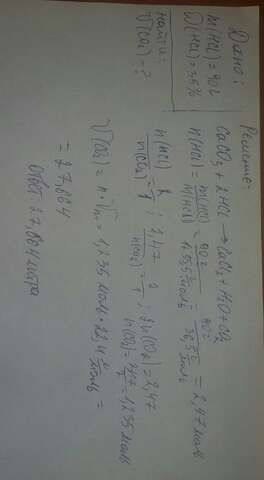 Дано:
m(HCl) = 90г
W(HCl) = 35%
Найти:
V(CO2) - ?
Решение:
CaCO3 + 2HCl → CaCl2 + H2O + CO2
n(HCl) = m(HCl) / M(HCl) = 90г / 1+35,5 г/моль = 90г / 36,5 г/моль = 2,47 моль
n(HCl) / n(CO2) = 2 / 1 ; 2,47 / n(CO2) = 2 / 1 ; 2n(CO2) = 2,47
n(CO2) = 2,47 / 2 = 1,235 моль
V(CO2) = n · Vm = 1,235 моль · 22,4 л/моль =
= 27,664
Ответ: 27,664 литра